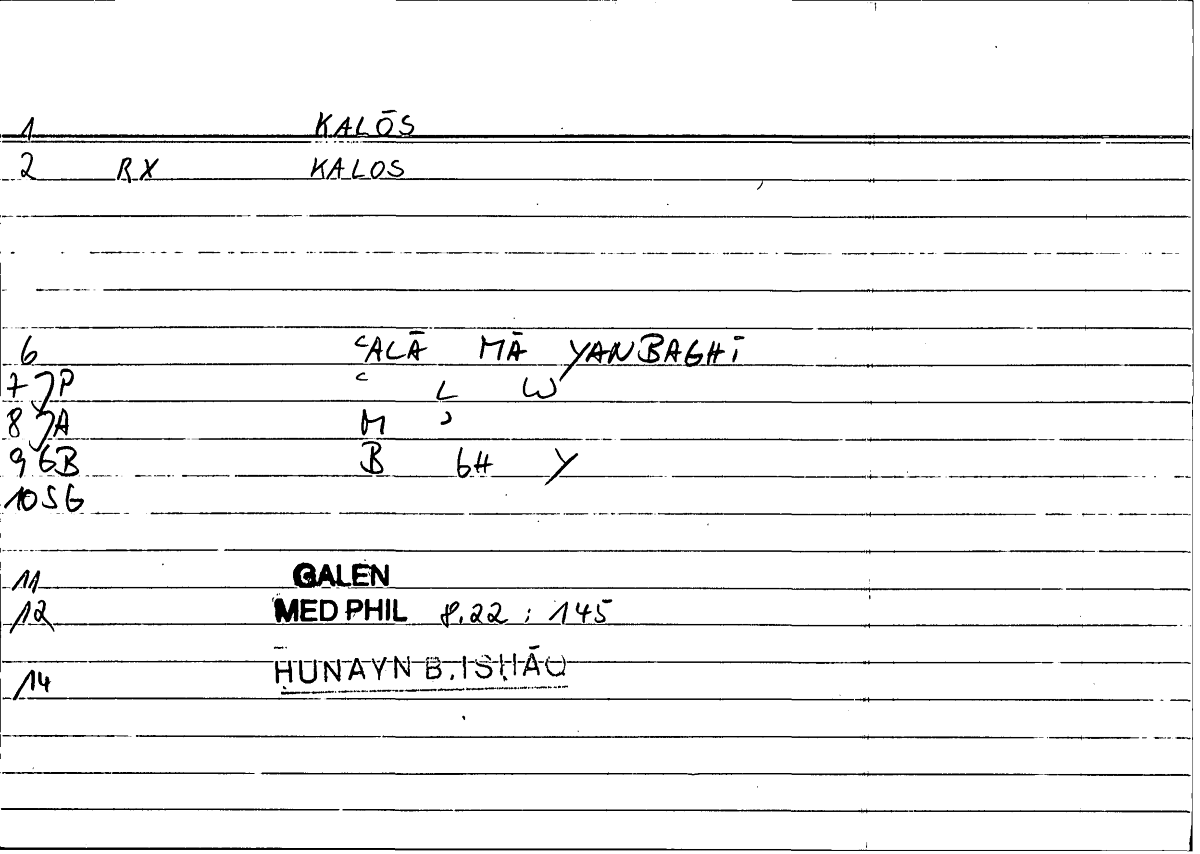 1 KALŌS
2 RX KALOS
6 ʿALĀ MĀ YANBAGHĪ
7 P ʿ L W
8 A M ʾ
9 GB B GH Y
10 SG
11 GALEN
12 MED PHIL 8.22 : 145
14 ḤUNAYN B. ISḤĀQ